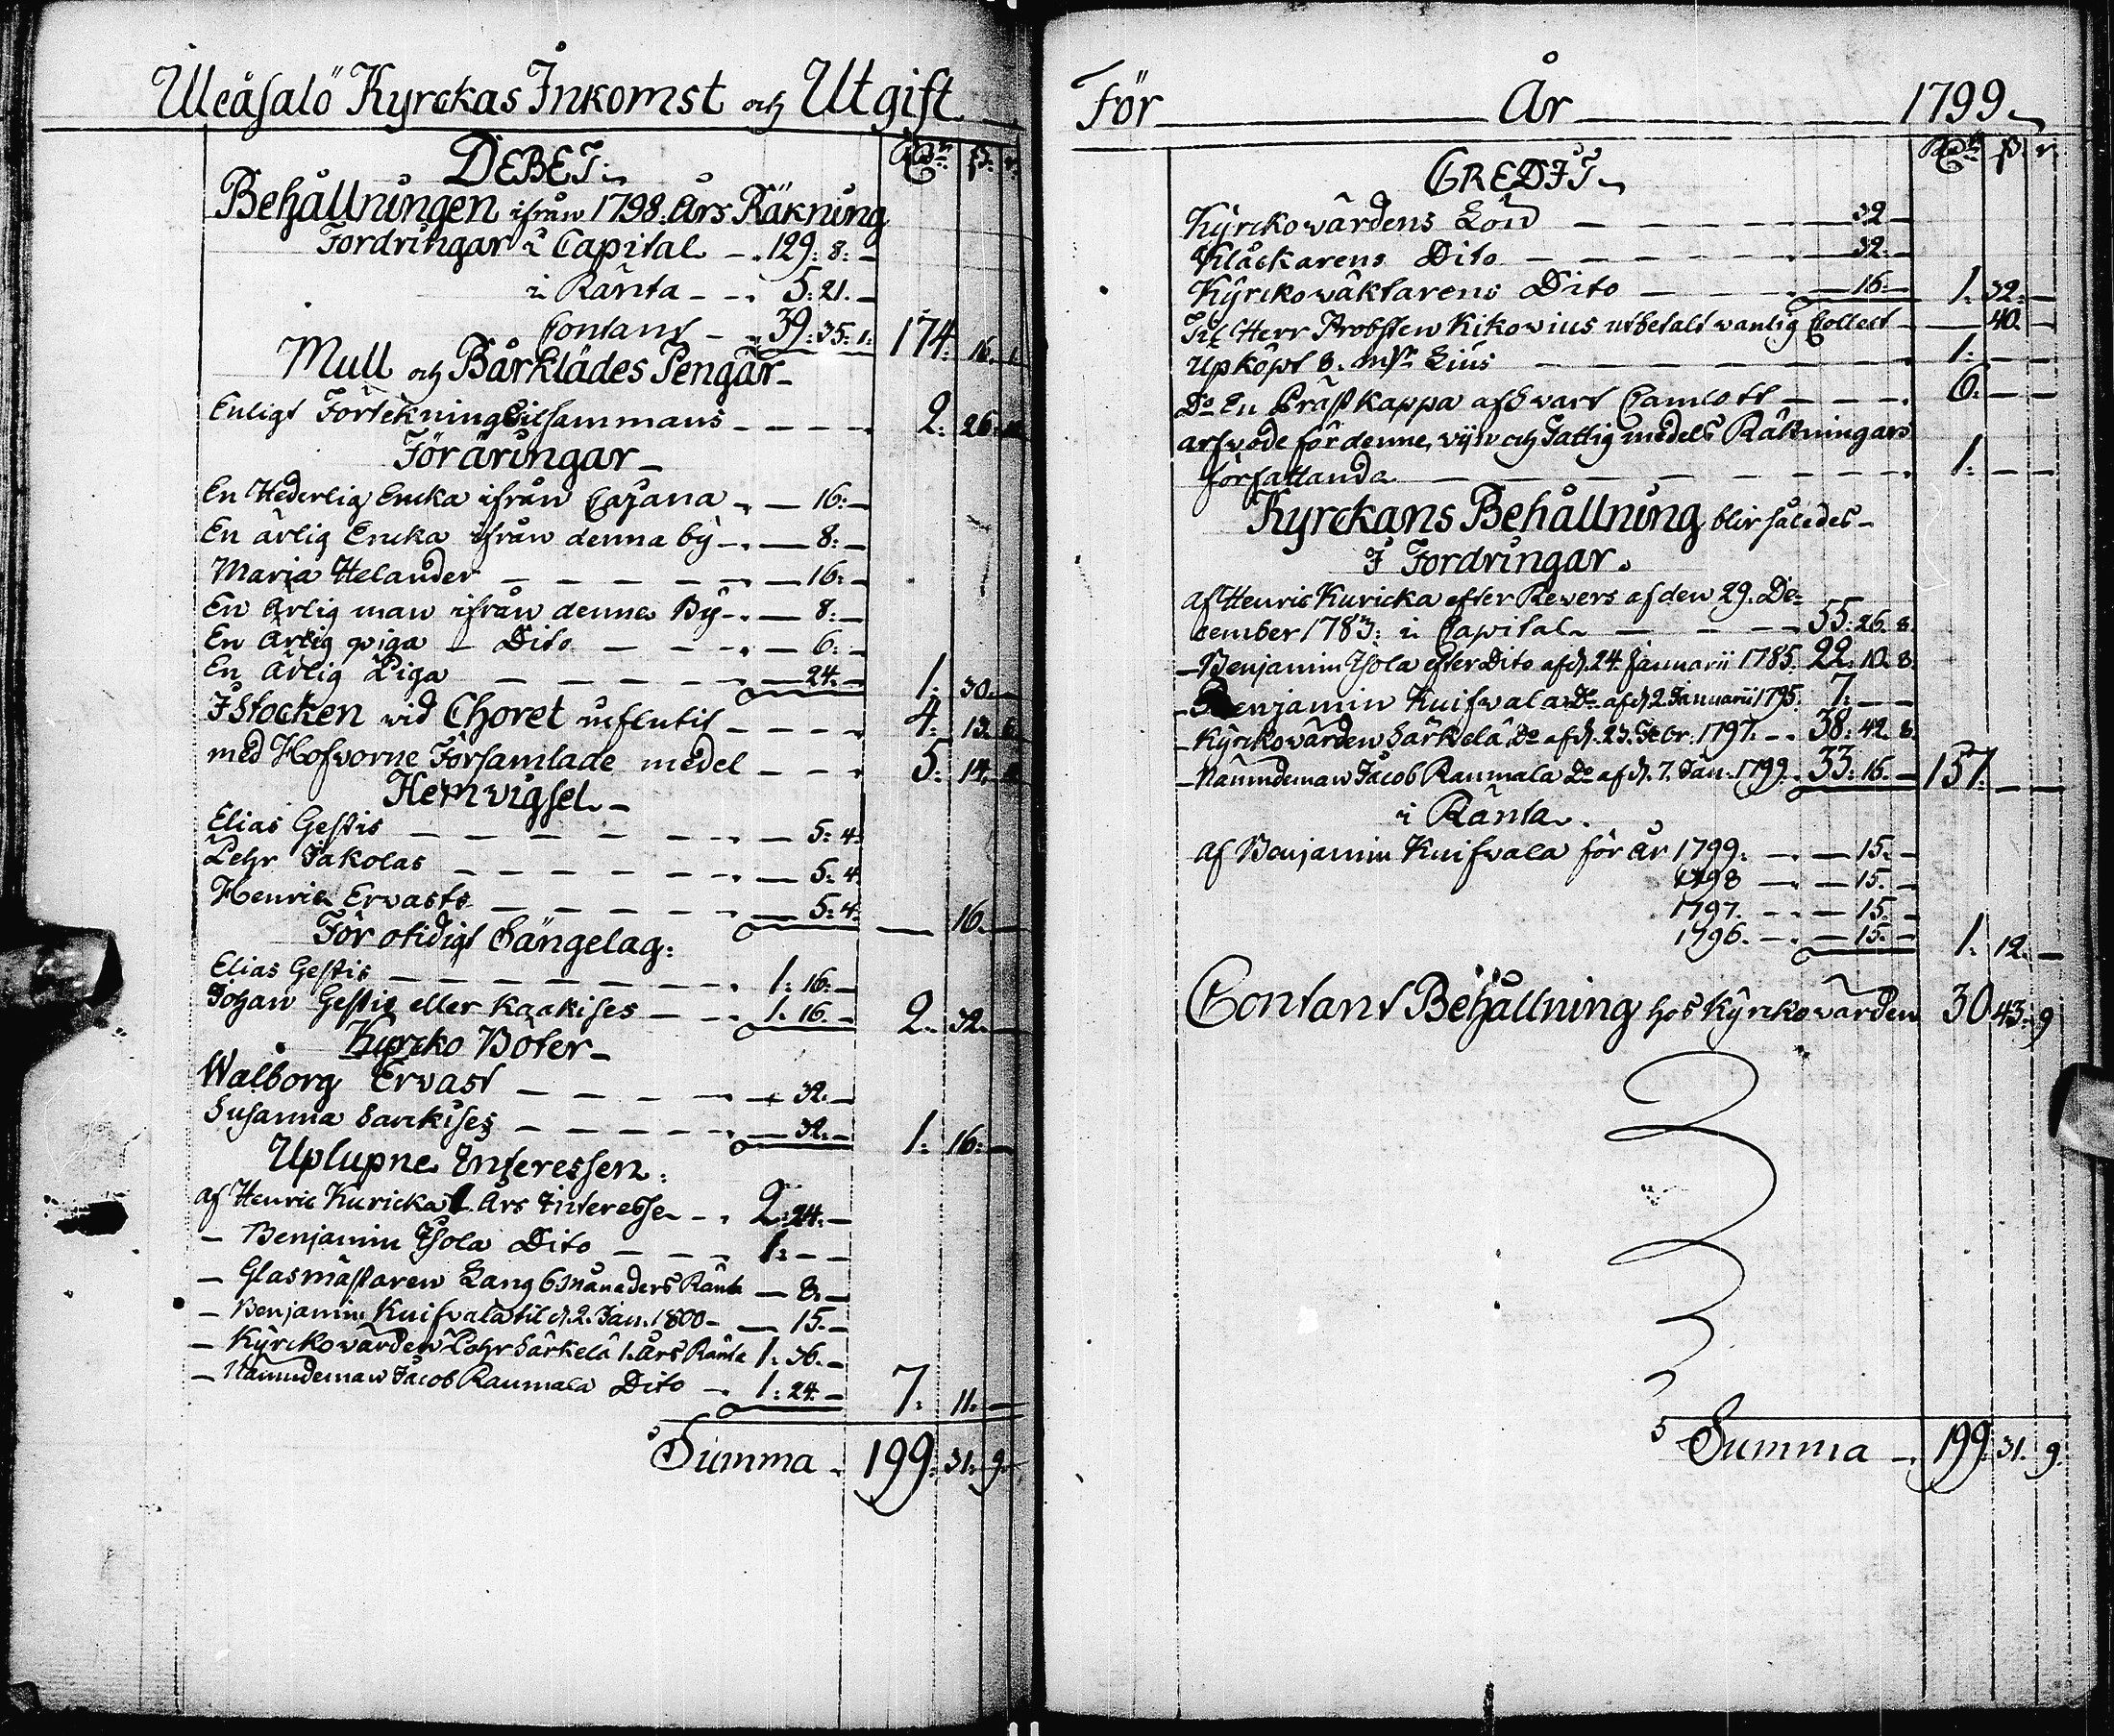 Uleåsalö Kyrckas Inkomst och Utgift
DEBET Rdr ß. r.
Behållningen ifrån 1798. Års Räkning
Fordringar i Capital - 129: 8: -
i Ränta - - 5: 21. -
Contant - - 39: 35: 1: 174: 16. 1
Mull och Bårklädes Pengar -
Enligt Förtekning tilsammans - - - - 2: 26:
Föräringar -
En Hederlig Encka ifrån Cajana - - 16: -
En ärlig Encka ifrån denna by - - 8: -
Maria Helander - - - - - - 16: -
En ärlig man ifrån denne By - - 8: -
En ärlig piga - Dito - - - - 6: -
En ärlig Piga - - - - - - 24: - 1: 30. -
I Stocken wid Choret influtit - - - - 4: 13.
med Hofvorne Församlade medel - - - 5: 14.
Hemvigsel. -
Elias Gestis - - - - - - - 5: 4.
Pehr Jakolas - - - - - - - 5: 4.
Henric Ervasts - - - - - - 5: 4. - 16. -
För otidigt Sängelag:
Elias Gestis - - - - - - - 1: 16: -
Johan Gestis eller Kaakises - - - 1. 16. - 2. 32. -
Kyrcko Böter -
Walborg Ervast - - - - - 32. -
Susanna Sarckises - - - - - - 32: - 1: 16: -
Uplupne Interessen:
af Henric Kuricka 1. Års Interesse - - 2: 24. -
- Benjamin Ysola Dito - - - 1: - -
- Glasmästaren Lang 6. Månaders Ränta - 8. -
- Benjamin Knifvala til d. 2. Jan. 1800 - - 15. -
- Kyrckovärden Pehr Särkelä 1. Års Ränta 1: 36. -
- Nämndeman Jacob Raumala Dito - 1: 24. - 7: 11. -
Summa - 199: 31: 9.
För År 1799
CREDIT Rdr ß. r.
Kyrckovärdens Lön - - - - - - 32 -
Klåckarens Dito - - - - - - 32: -
Kyrckowäktarens Dito - - - - 16: - 1: 32: -
Til Herr Probsten Kikovius utbetalt vanlig Collect - - 40. -
Upköpt 8. mkr Lius - - - - - - 1: - -
Do En Präst kappa af Svart Camlott - - - 6: - -
arfvode för denne, vijn och Fattig medels Räkningars
författande - - - - - - - 1: - -
Kyrckans Behållning blir således -
I Fordringar.
af Henric Kuricka efter Revers af den 29. De=
cember 1783: i Capital - - - - 55: 26. 8.
- Benjamin Ysola efter Dito af d. 24. Januarii 1785. 22: 10. 8.
- Benjamin Knifvala Do af d. 2 Januarii 1795. 7: - -
- Kyrckovärden Särkelä Do af d. 23. Febr. 1797. - - 38: 42. 8.
- Nämndeman Jacob Raumala Do af d. 7. Jan. 1799. 33: 16. - 157. - -
i Ränta.
af Benjamin Knifvala för År 1799. - - 15. -
1798 - - 15. -
1797. - - 15. -
1796. - - 15. - 1. 12. -
Contant Behållning hos Kyrckovärden 30 43: 9
Summa - 199: 31. 9.